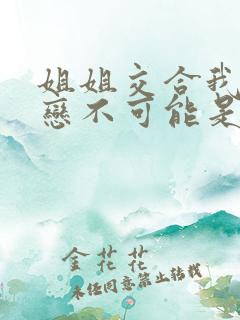 姐姐交合我
戀不可能是
金花花
未经同意禁止转载